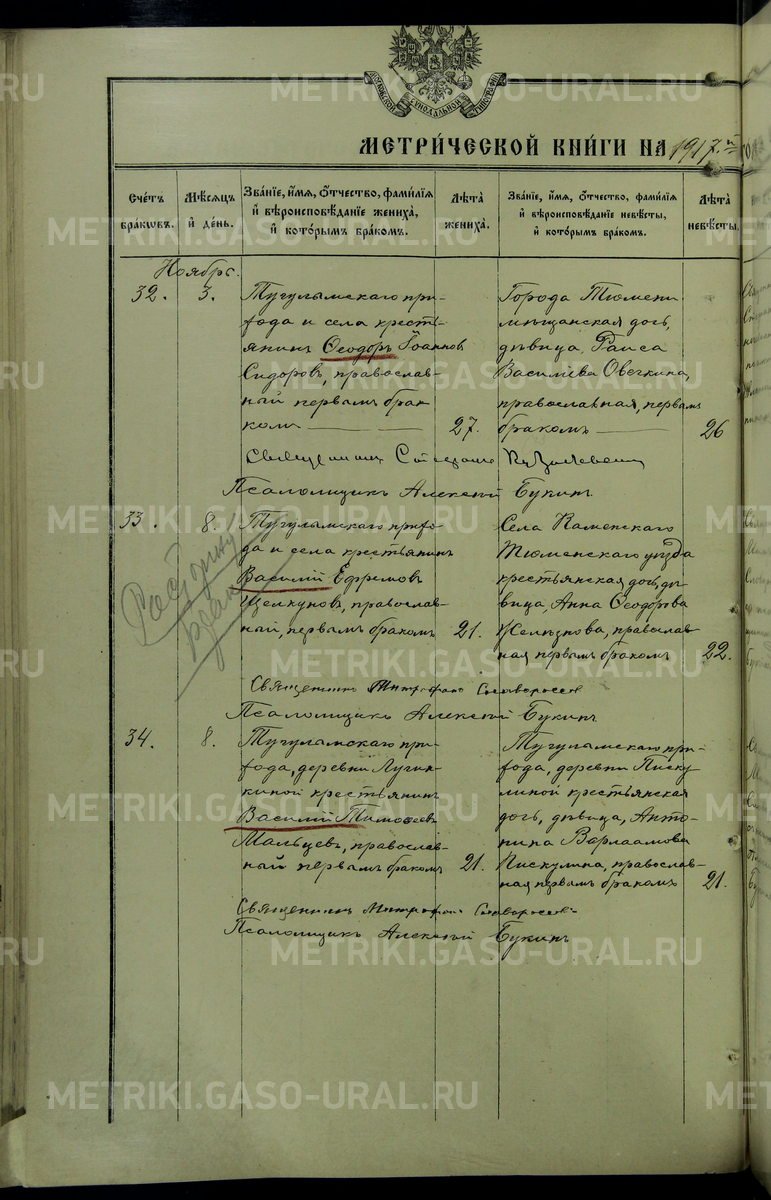 МЕТРИ́ЧЕСКОЙ КНИ́ГИ НА 1917 й
Сче́тъ бра́кѡвъ.
Мѣ́сяцъ и҆ де́нь.
Зва́нїе, и҆́мя, ѻ҆́тчество, фами́лїя и҆ вѣроисповѣ́данїе жениха̀, и҆ кото́рымъ бра́комъ.
Лѣ́та жениха̀.
Зва́нїе, и҆́мя, ѻ҆́тчество, фами́лїя и҆ вѣроисповѣ́данїе невѣ́сты, и҆ кото́рымъ бра́комъ.
Лѣ́та невѣ́сты.
Ноябрь.
32.
3.
Тугулымскаго при-
хода и села кресть-
янинъ Ѳеодоръ Іоанновъ
Сидоровъ, православ-
ный первымъ бра-
комъ
27.
Города Тюмени
мѣщанская дочь,
дѣвица, Раиса
Василіева Овечкина,
православная, первымъ
бракомъ
26
Священникъ
Псаломщикъ Алексій Букинъ
33.
8.
Тугулымскаго прихо-
да и села крестьянинъ
Василій Ефремовъ
Щелкуновъ, православ-
ный, первымъ бракомъ
21.
Села Каменскаго
Тюменскаго уѣзда
крестьянская дочь, дѣ-
вица, Анна Ѳеодорова
Желѣзнова, православ-
ная первымъ бракомъ
22.
Священникъ Митрофанъ
Псаломщикъ Алексій Букинъ
34.
8.
Тугулымскаго при-
хода, деревни Лучин-
киной крестьянинъ
Василій Тимоѳеевъ
Мальцевъ, православ-
ный первымъ бракомъ
21.
Тугулымскаго при-
хода, деревни Писку-
линой крестьянская
дочь, дѣвица, Анто-
нина Варлаамова
Пискулина, православ-
ная первымъ бракомъ
21.
Священникъ Митрофанъ
Псаломщикъ Алексій Букинъ
METRIKI.GASO-URAL.RU